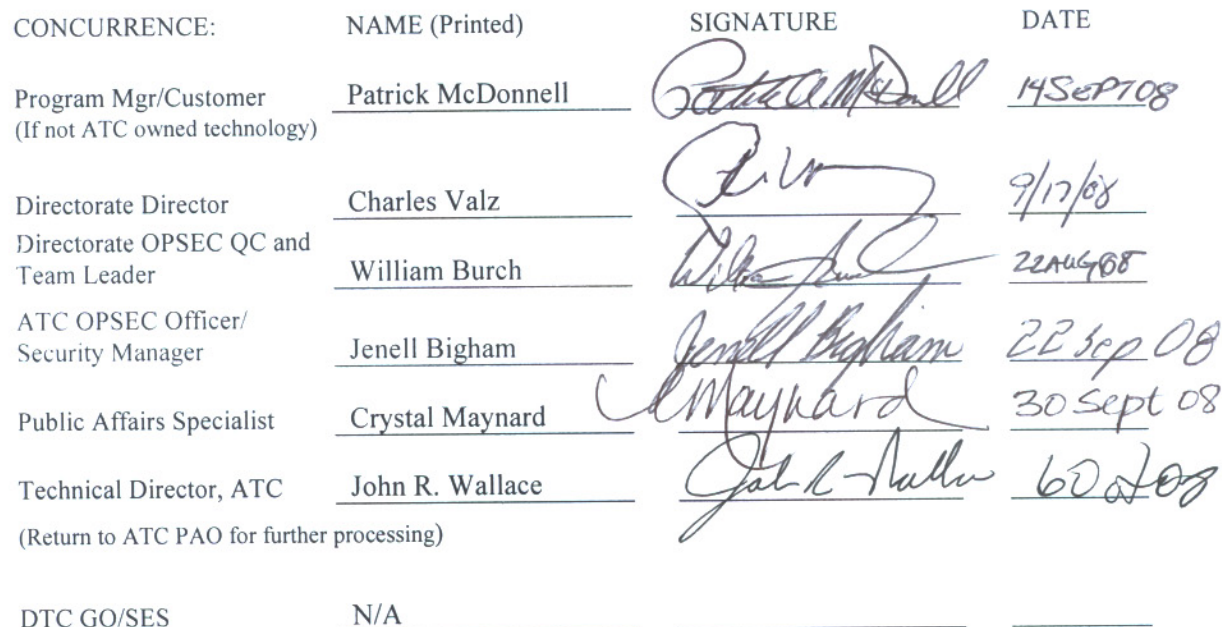 CONCURRENCE: NAME (Printed) SIGNATURE DATE
Program Mgr/Customer Patrick McDonnell Patrick A McDonnell 14SEPT08
(If not ATC owned technology)
Directorate Director Charles Valz 9/17/08
Directorate OPSEC QC and
Team Leader William Burch 22AUG08
ATC OPSEC Officer/
Security Manager Jenell Bigham Jenell Bigham 22 Sep 08
Public Affairs Specialist Crystal Maynard CMaynard 30 Sept 08
Technical Director, ATC John R. Wallace John R Wallace 6 Oct 08
(Return to ATC PAO for further processing)
DTC GO/SES N/A